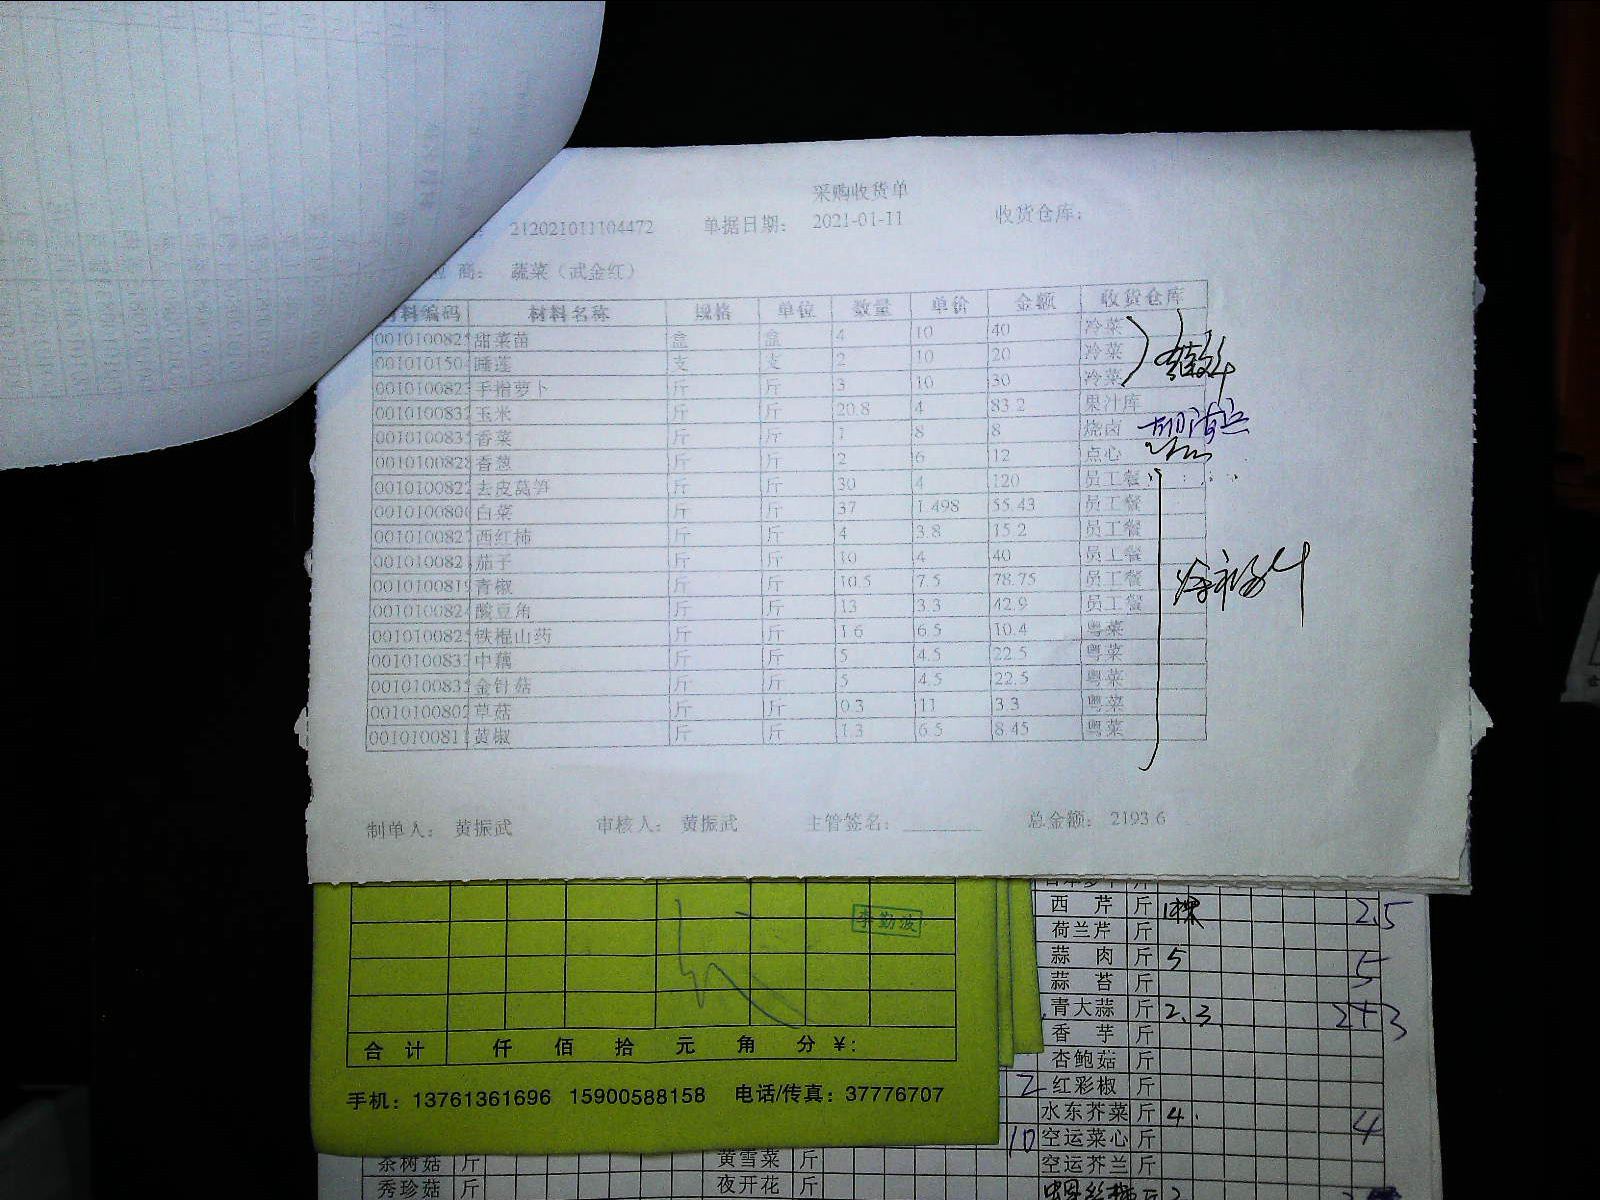 采购收货单
212021011104472 单据日期： 2021-01-11 收货仓库：
商： 蔬菜（武金红）
料编码 材料名称 规格 单位 数量 单价 金额 收货仓库
001010082 甜菜苗 盒 盒 4 10 40 冷菜
001010150 睡莲 支 支 2 10 20 冷菜
001010082 手指萝卜 斤 斤 3 10 30 冷菜
001010083 玉米 斤 斤 20.8 4 83.2 果汁库
001010083 香菜 斤 斤 1 8 8 烧卤
001010082 香葱 斤 斤 2 6 12 点心
001010082 去皮莴笋 斤 斤 30 4 120 员工餐
001010080 白菜 斤 斤 37 1.498 55.43 员工餐
001010082 西红柿 斤 斤 4 3.8 15.2 员工餐
001010082 茄子 斤 斤 10 4 40 员工餐
001010081 青椒 斤 斤 10.5 7.5 78.75 员工餐
001010082 酸豆角 斤 斤 13 3.3 42.9 员工餐
001010082 铁棍山药 斤 斤 1.6 6.5 10.4 粤菜
001010083 中藕 斤 斤 5 4.5 22.5 粤菜
001010083 金针菇 斤 斤 5 4.5 22.5 粤菜
001010080 草菇 斤 斤 0.3 11 3.3 粤菜
001010081 黄椒 斤 斤 1.3 6.5 8.45 粤菜
制单人： 黄振武 审核人： 黄振武 主管签名： 总金额： 2193.6
李勤波
合计 仟 佰 拾 元 角 分 ¥：
手机：13761361696 15900588158 电话/传真：37776707
西芹 斤 1棵 2.5
荷兰芹 斤
蒜肉 斤 5 5
蒜苔 斤
青大蒜 斤 2.3 2+3
香芋 斤
杏鲍菇 斤
2 红彩椒 斤
水东芥菜 斤 4 4
10 空运菜心 斤
茶树菇 斤 黄雪菜 斤 空运芥兰 斤
秀珍菇 斤 夜开花 斤